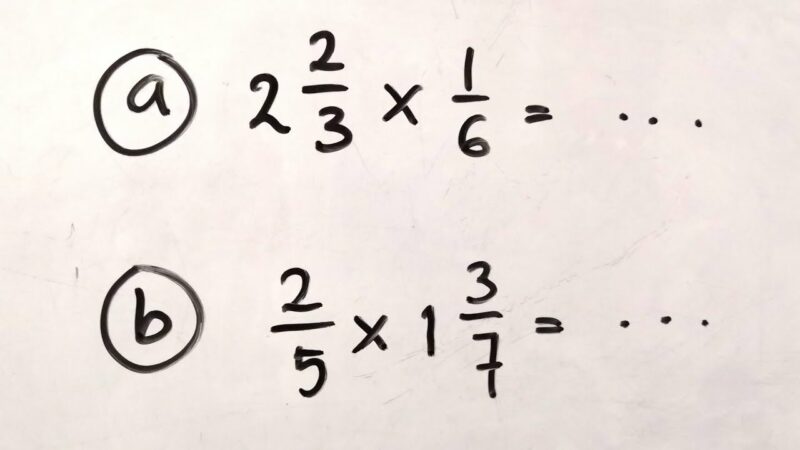 a 2 2/3 × 1/6 = ...
b 2/5 × 1 3/7 = ...